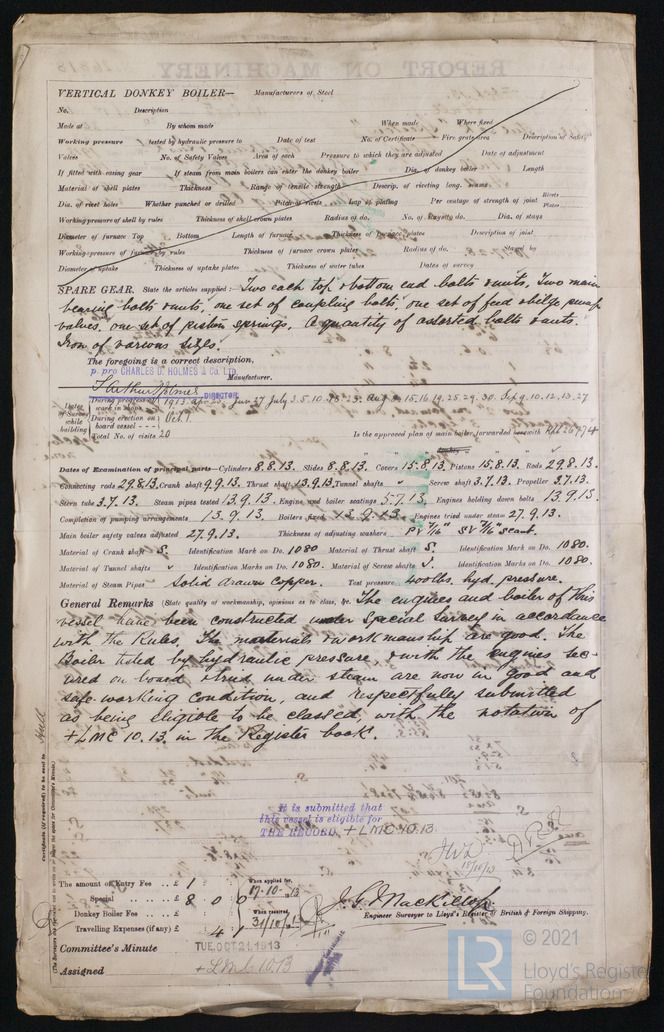 VERTICAL DONKEY BOILER— Manufacturers of Steel
No. Description
Made at By whom made When made Where fixed
Working pressure tested by hydraulic pressure to Date of test No. of Certificate Fire grate area Description of Safety
Valves No. of Safety Valves Area of each Pressure to which they are adjusted Date of adjustment
If fitted with easing gear If steam from main boilers can enter the donkey boiler Dia. of donkey boiler Length
Material of shell plates Thickness Range of tensile strength Descrip. of riveting long. seams
Dia. of rivet holes Whether punched or drilled Pitch of rivets Lap of plating Per centage of strength of joint Rivets Plates
Working pressure of shell by rules Thickness of shell crown plates Radius of do. No. of Stays to do. Dia. of stays
Diameter of furnace Top Bottom Length of furnace Thickness of furnace plates Description of joint
Working pressure of furnace by rules Thickness of furnace crown plates Radius of do. Stayed by
Diameter of uptake Thickness of uptake plates Thickness of water tubes Dates of survey
SPARE GEAR. State the articles supplied:— Two each top & bottom end bolts & nuts, Two main
bearing bolts & nuts, one set of coupling bolts, one set of feed & bilge pump
valves, one set of piston springs. A quantity of assorted bolts & nuts.
Iron of various sizes.
The foregoing is a correct description,
p. pro CHARLES D. HOLMES & Co. LTD Manufacturer.
DIRECTOR
Dates of Survey while building
During progress of work in shops 1913 Apr. 20, Jun 27 July 3. 5. 10. 23. Aug 8. 15. 16. 19. 25. 29. 30. Sep 9. 10. 12. 13. 27
During erection on board vessel Oct. 1.
Total No. of visits 20 Is the approved plan of main boiler forwarded herewith
" " " donkey " " "
Dates of Examination of principal parts—Cylinders 8.8.13. Slides 8.8.13. Covers 15.8.13. Pistons 15.8.13. Rods 29.8.13.
Connecting rods 29.8.13. Crank shaft 9.9.13. Thrust shaft 13.9.13. Tunnel shafts " Screw shaft 3.7.13. Propeller 3.7.13.
Stern tube 3.7.13. Steam pipes tested 13.9.13. Engine and boiler seatings 5.7.13. Engines holding down bolts 13.9.13.
Completion of pumping arrangements 13.9.13. Boilers fixed 13.9.13. Engines tried under steam 27.9.13.
Main boiler safety valves adjusted 27.9.13. Thickness of adjusting washers P V 7/16" S V 7/16" scant.
Material of Crank shaft S. Identification Mark on Do. 1080 Material of Thrust shaft S. Identification Mark on Do. 1080.
Material of Tunnel shafts " Identification Marks on Do. 1080. Material of Screw shafts Identification Marks on Do. 1080.
Material of Steam Pipes Solid drawn copper. Test pressure 400 lbs. hyd. pressure.
General Remarks (State quality of workmanship, opinions as to class, &c. The engines and boiler of this
vessel have been constructed under Special Survey in accordance
with the Rules. The materials & workmanship are good. The
Boiler tested by hydraulic pressure, & with the engines sec-
ured on board & tried under steam are now in good and
safe working condition, and respectfully submitted
as being eligible to be classed, with the notation of
+ LMC 10.13 in the Register book.
It is submitted that
this vessel is eligible for
THE RECORD. + LMC 10.13.
The amount of Entry Fee .. £ 1 When applied for,
Special .. £ 8 0 0 17.10.13
Donkey Boiler Fee .. £ When received,
Travelling Expenses (if any) £ 4
J. G. Mackillop
Engineer Surveyor to Lloyd's Register of British & Foreign Shipping.
Committee's Minute TUE. OCT 21. 1913
Assigned + LMC 10.13
Certificate (if required) to be sent to Hull
© 2021
LR Lloyd's Register
Foundation